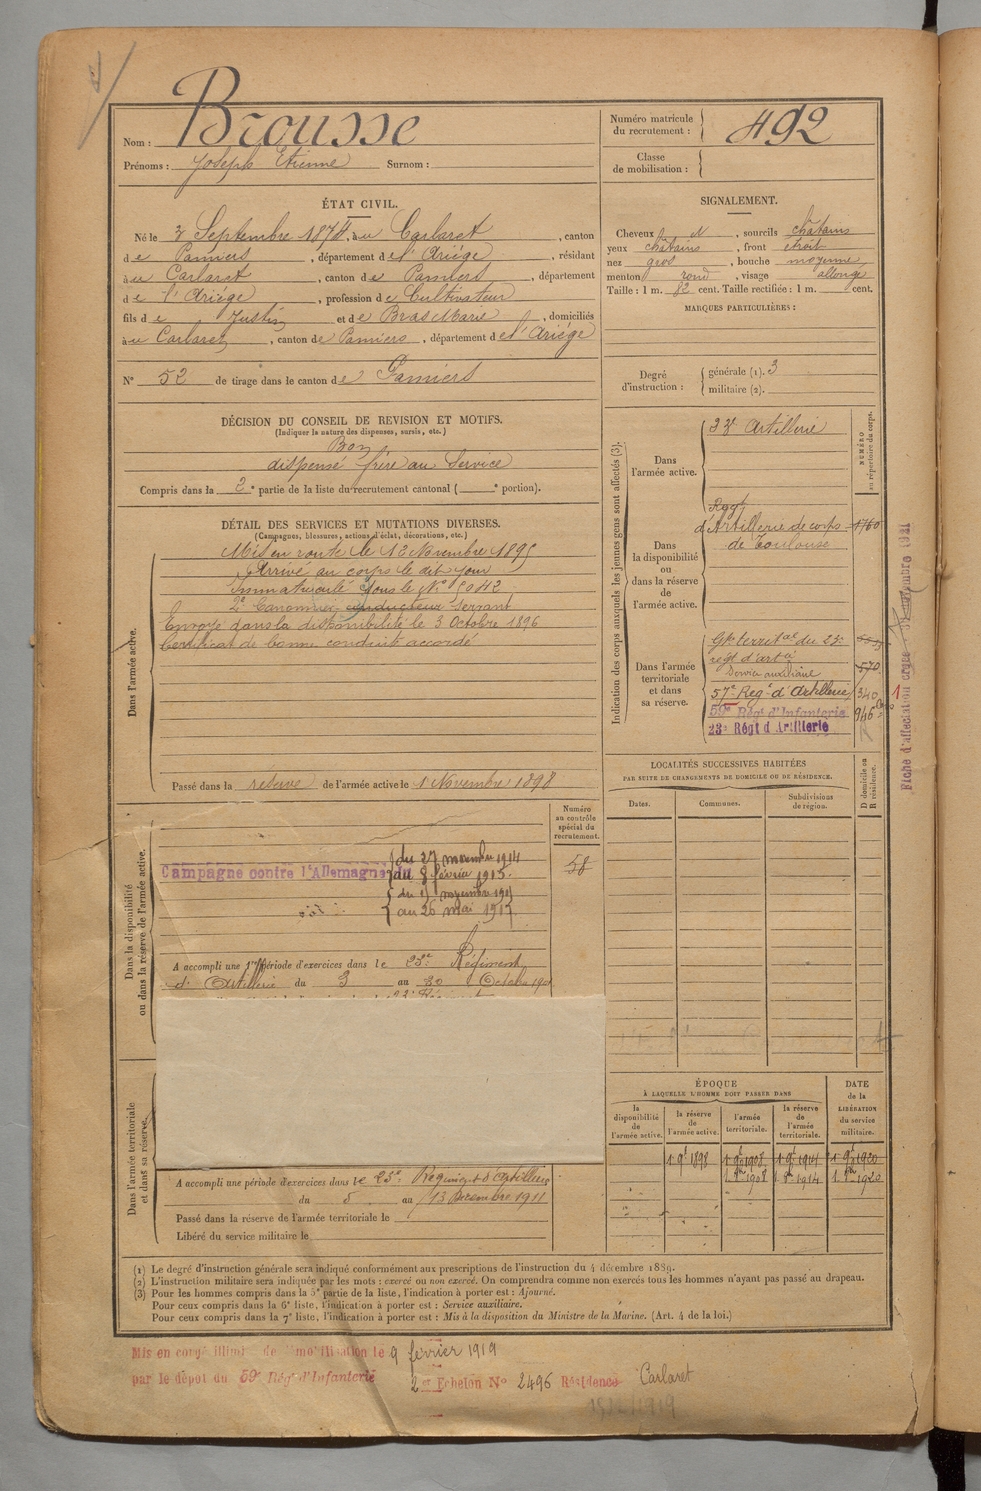 Brousse
Nom :
Prénoms : Joseph Etienne Surnom :
Numéro matricule du recrutement : 492
Classe de mobilisation :
ÉTAT CIVIL.
Né le 3 Septembre 1874, à au Carlaret, canton
de Pamiers, département de l'Ariége, résidant
à au Carlaret, canton de Pamiers, département
de l'Ariége, profession de Cultivateur
fils de Justin et de Bras Marie, domiciliés
à au Carlaret, canton de Pamiers, département de l'Ariége
N° 52 de tirage dans le canton de Pamiers
SIGNALEMENT.
Cheveux N, sourcils châtains
yeux châtains, front etroit
nez gros, bouche moyenne
menton rond, visage allongé
Taille : 1 m. 82 cent. Taille rectifiée : 1 m. cent.
MARQUES PARTICULIÈRES :
Degré d'instruction : générale (1). 3
militaire (2).
DÉCISION DU CONSEIL DE REVISION ET MOTIFS.
(Indiquer la nature des dispenses, sursis, etc.)
Bon
dispensé frère au Service
Compris dans la 2e partie de la liste du recrutement cantonal ( e portion).
DÉTAIL DES SERVICES ET MUTATIONS DIVERSES.
(Campagnes, blessures, actions d'éclat, décorations, etc.)
Dans l'armée active.
Mis en route le 13 Novembre 1895
Arrivé au corps le dit jour
Immatriculé sous le N° 5042
2e Canonnier conducteur Servant
Envoyé dans la disponibilité le 3 Octobre 1896
Certificat de bonne conduite accordé
Passé dans la réserve de l'armée active le 1 Novembre 1898
Indication des corps auxquels les jeunes gens sont affectés (3).
NUMÉRO au répertoire du corps.
Dans l'armée active.
23e Artillerie
Dans la disponibilité ou dans la réserve de l'armée active.
Regt
d'Artillerie de corps 1760
de Toulouse
Dans l'armée territoriale et dans sa réserve.
Gpe territal du 23e
régt d'artie 570
Service auxiliaire
57e Regt d'Artillerie 340
59e Régt d'Infanterie 946
23e Régt d'Artillerie
Fiche d'affectation créée novembre 1921
LOCALITÉS SUCCESSIVES HABITÉES
PAR SUITE DE CHANGEMENTS DE DOMICILE OU DE RÉSIDENCE.
Dates. Communes. Subdivisions de région. D domicile ou R résidence.
Dans la disponibilité ou dans la réserve de l'armée active.
Numéro au contrôle spécial du recrutement.
58
Campagne contre l'Allemagne
du 27 novembre 1914
au 8 février 1915.
du novembre 191
au 26 mai 1917
A accompli une 1re période d'exercices dans le 23e Régiment
d'Artillerie du 3 au 30 Octobre 190
Dans l'armée territoriale et dans sa réserve.
A accompli une période d'exercices dans le 23e Régiment d'Artillerie
du 5 au 13 Décembre 1911
Passé dans la réserve de l'armée territoriale le
Libéré du service militaire le
ÉPOQUE
À LAQUELLE L'HOMME DOIT PASSER DANS
DATE de la LIBÉRATION du service militaire.
la disponibilité de l'armée active. la réserve de l'armée active. l'armée territoriale. la réserve de l'armée territoriale.
1 9e 1898 1 9e 1908 1 9e 1914 1 9e 1920
1 8re 1908 1 8re 1914 1 8re 1920
(1) Le degré d'instruction générale sera indiqué conformément aux prescriptions de l'instruction du 4 décembre 1889.
(2) L'instruction militaire sera indiquée par les mots : exercé ou non exercé. On comprendra comme non exercés tous les hommes n'ayant pas passé au drapeau.
(3) Pour les hommes compris dans la 5e partie de la liste, l'indication à porter est : Ajourné.
Pour ceux compris dans la 6e liste, l'indication à porter est : Service auxiliaire.
Pour ceux compris dans la 7e liste, l'indication à porter est : Mis à la disposition du Ministre de la Marine. (Art. 4 de la loi.)
Mis en congé illimité de démobilisation le 9 février 1919
par le dépôt du 59e Régt d'Infanterie
2e Echelon N° 2496 Résidence Carlaret